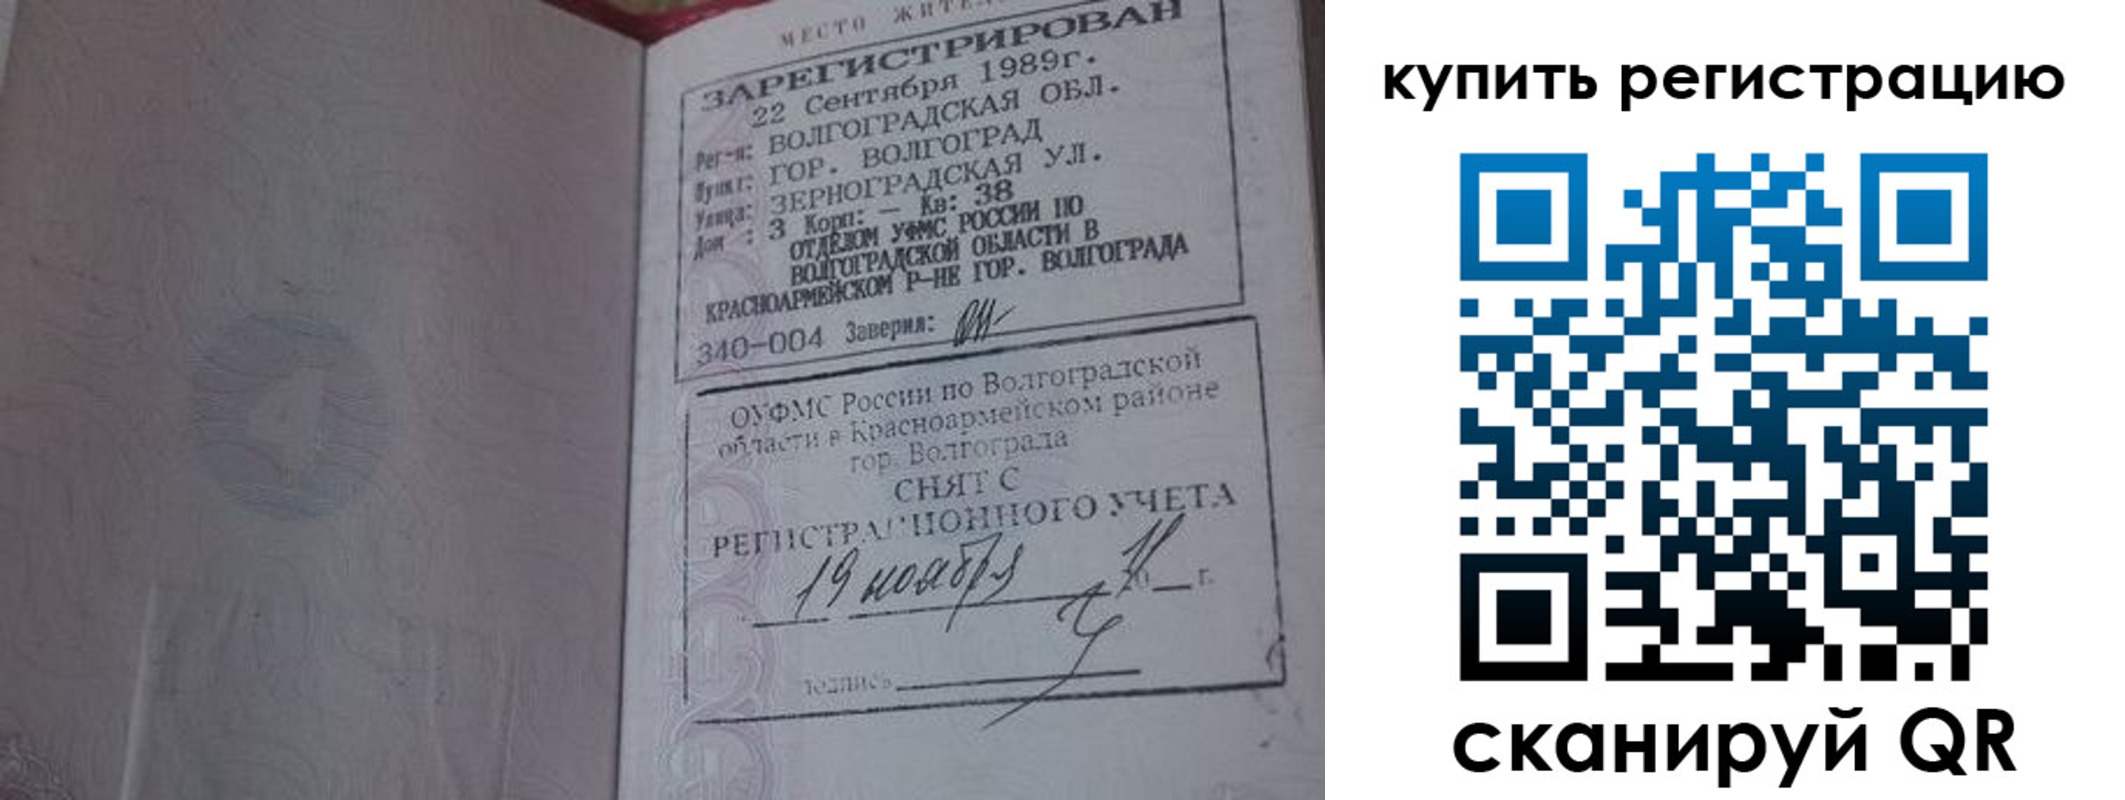 МЕСТО ЖИТЕЛ
ЗАРЕГИСТРИРОВАН
22 Сентября 1989г.
Рег-н: ВОЛГОГРАДСКАЯ ОБЛ.
Пункт: ГОР. ВОЛГОГРАД
Улица: ЗЕРНОГРАДСКАЯ УЛ.
Дом : 3 Корп: — Кв: 38
ОТДЕЛОМ УФМС РОССИИ ПО
ВОЛГОГРАДСКОЙ ОБЛАСТИ В
КРАСНОАРМЕЙСКОМ Р-НЕ ГОР. ВОЛГОГРАДА
340-004 Заверил:
ОУФМС России по Волгоградской
области в Красноармейском районе
гор. Волгограда
СНЯТ С
РЕГИСТРАЦИОННОГО УЧЕТА
19 ноября 20 11 г.
подпись
купить регистрацию
сканируй QR